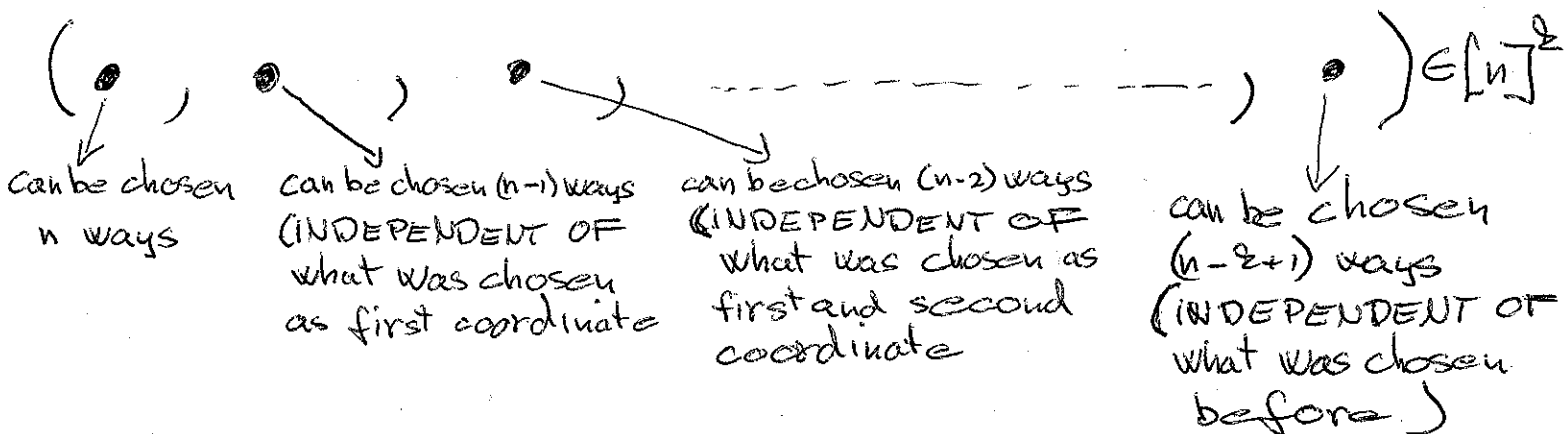 ( • , • , • , ------- , • ) ∈ [n]^k
can be chosen
n ways
can be chosen (n-1) ways
(INDEPENDENT OF
what was chosen
as first coordinate
can be chosen (n-2) ways
(INDEPENDENT OF
what was chosen as
first and second
coordinate
can be chosen
(n-k+1) ways
(INDEPENDENT OF
what was chosen
before)